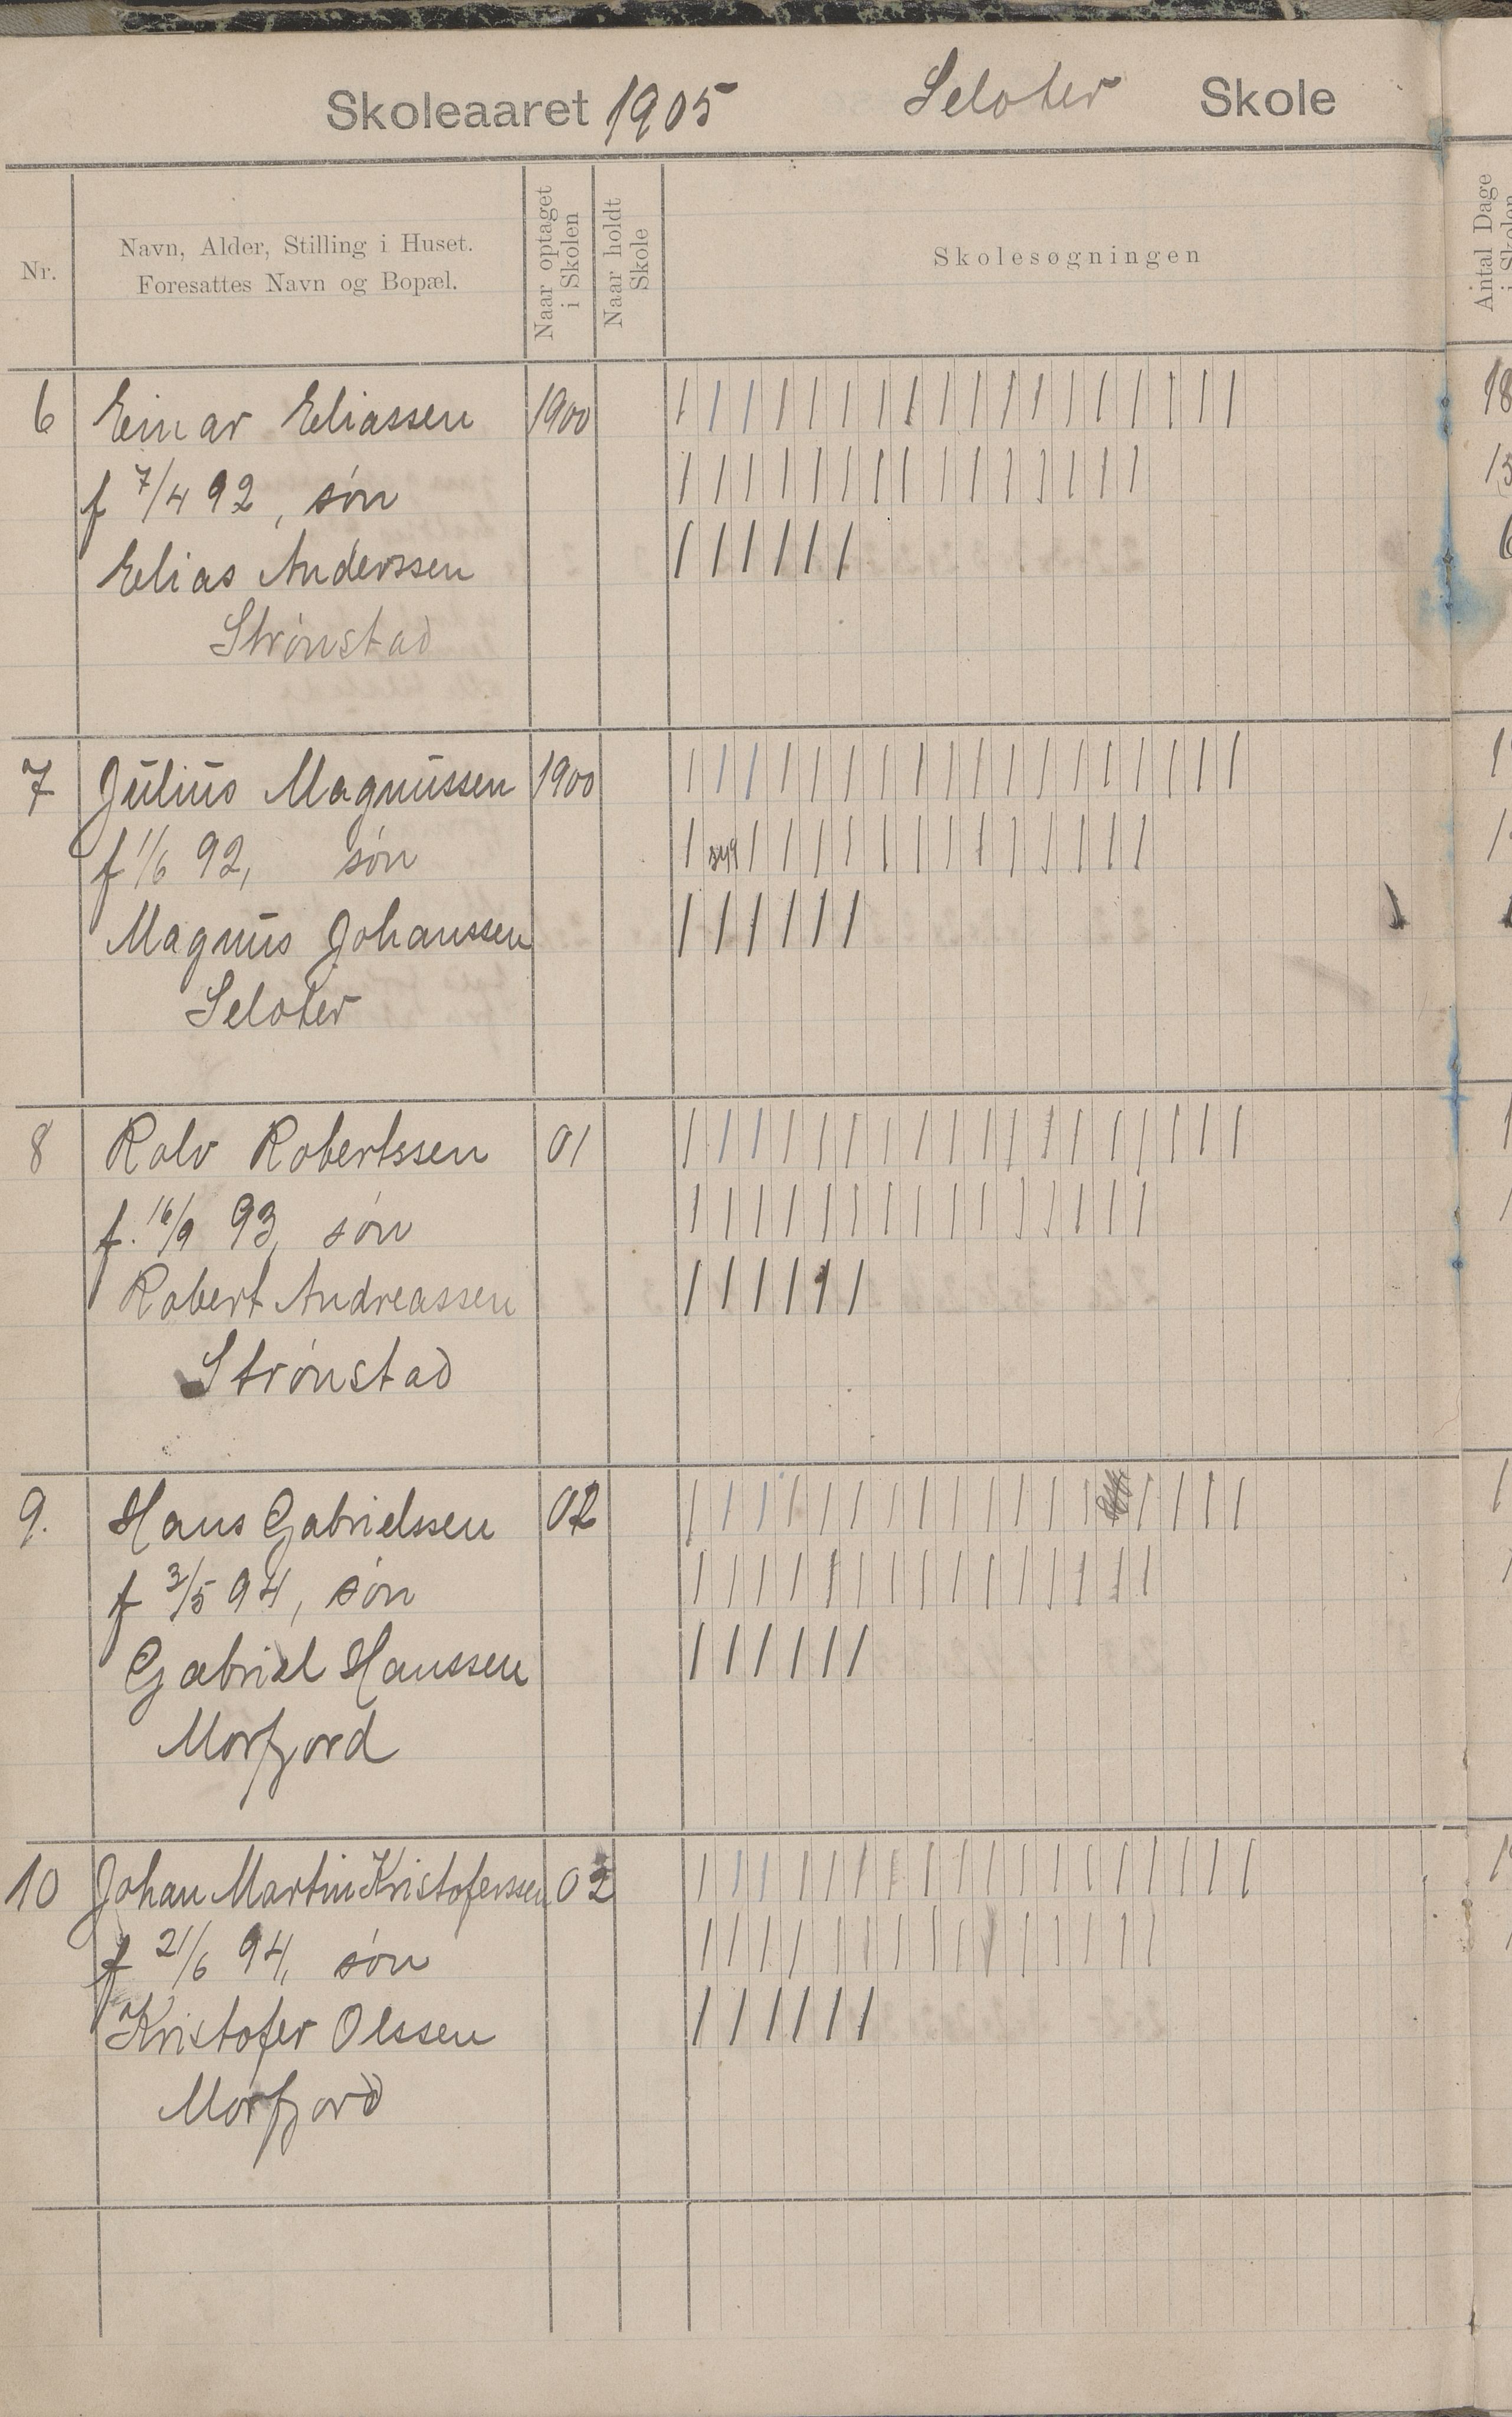 Skoleaaret 1905 Seloter Skole
Nr.
Navn, Alder, Stilling i Huset.
Foresattes Navn og Bopæl.
Naar optaget
i Skolen
Naar holdt
Skole
Skolesøgningen
Antal Dage
i Skolen
6 Einar Eliassen 1900 18
f 7/4 92, søn
Elias Anderssen
Strønstad
7 Julius Magnussen 1900
f 1/6 92, søn
syg
Magnus Johanssen
Seloter
8 Rolv Robertssen 01
f. 16/9 93, søn
Robert Andreassen
Strønstad
9. Hans Gabrielssen 02
f 3/5 94, søn
Gabriel Hanssen
Morfjord
10 Johan Martin Kristoferssen 02
f 21/6 94, søn
Kristofer Olssen
Morfjord